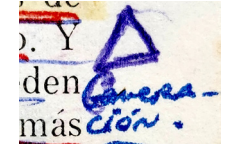 s de
o. Y
oden
más
Genera-
ción.